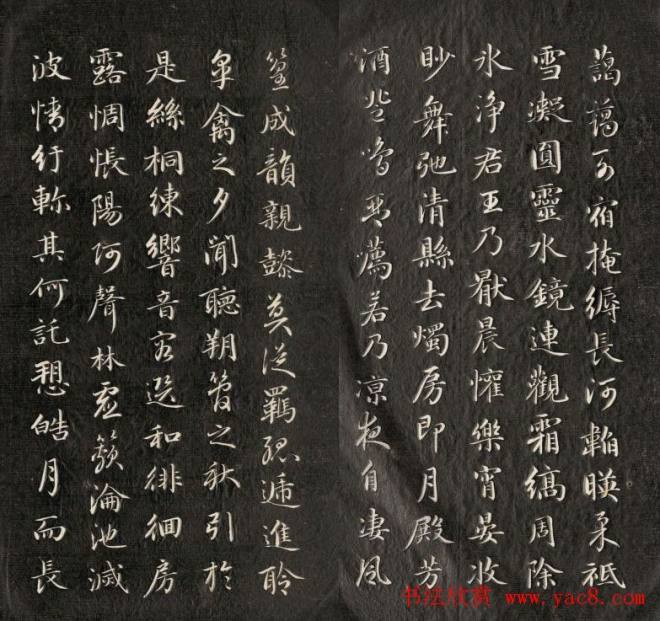 藹藹列宿掩縟長河韜暎柔祇
雪凝圓靈水鏡連觀霜縞周除
氷淨君王乃厭晨懽樂宵晏收
眇舞弛清縣去燭房即月殿芳
酒登鳴琴薦若乃凉夜自凄風
篁成韻親懿莫從羈孤遞進聆
皋禽之夕聞聽朔管之秋引於
是絲桐練響音容選和徘徊房
露惆悵陽阿聲林虛籟淪池滅
波情紆軫其何託愬皓月而長
书法欣赏 www.yac8.com